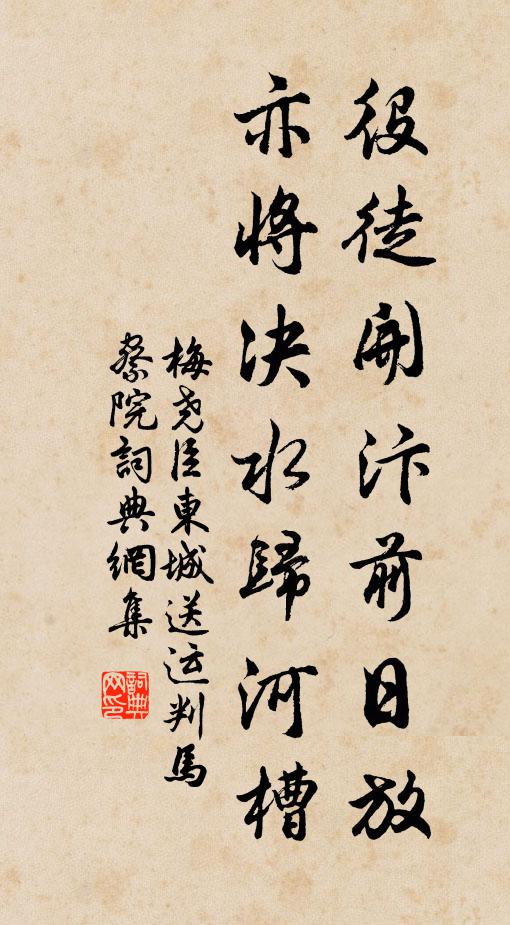 役徒開汴前日放
亦將決水歸河槽
梅堯臣東城送运判馬
察院詞典網集
詞典
网印